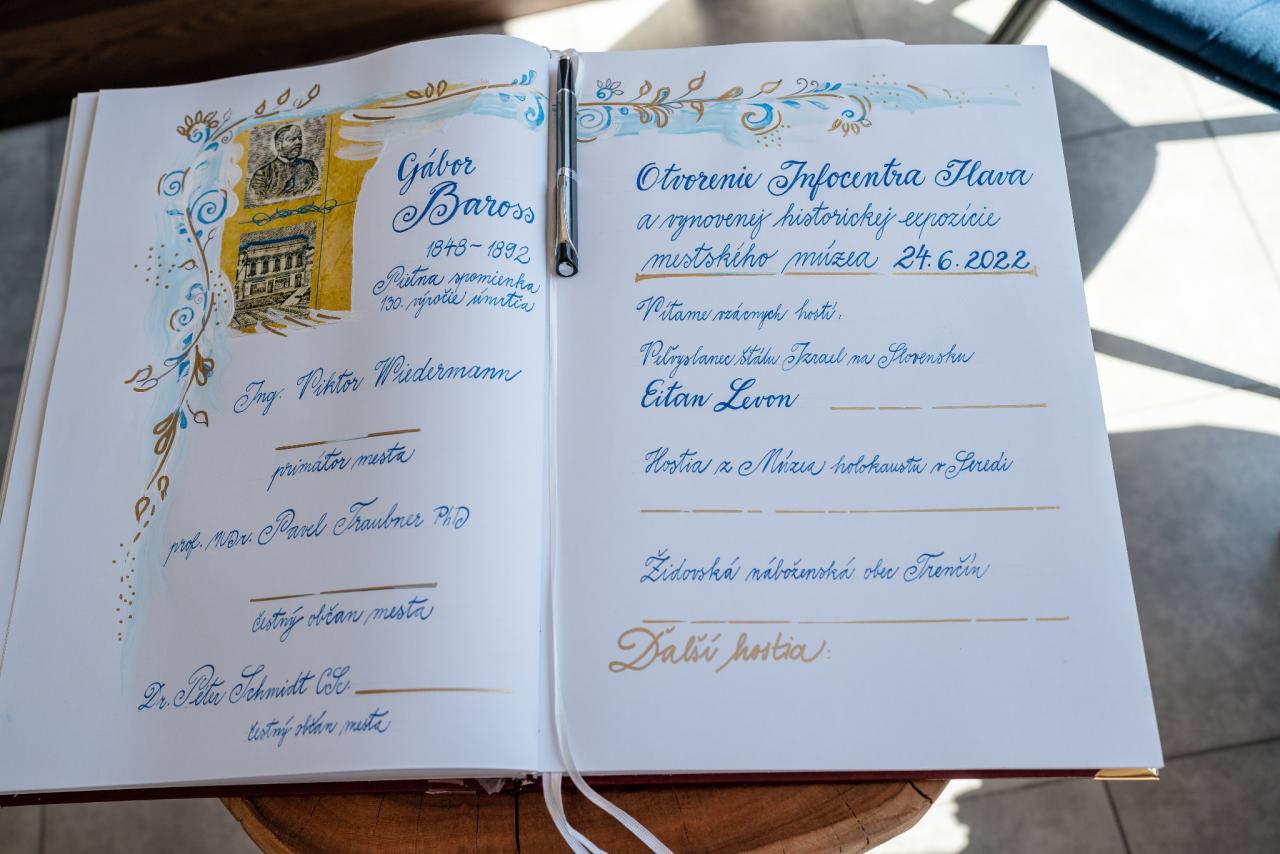 Gábor
Baross
1848-1892
Pietna spomienka
130. výročie úmrtia
Ing. Viktor Wiedermann
primátor mesta
prof. MUDr. Pavel Traubner PhD
čestný občan mesta
Dr. Peter Schmidt CSc.
čestný občan mesta
Otvorenie Infocentra Ilava
a vynovenej historickej expozície
mestského múzea 24.6.2022
Vítame vzácnych hostí:
Veľvyslanec štátu Izrael na Slovensku
Eitan Levon
Hostia z Múzea holokaustu v Seredi
Židovská náboženská obec Trenčín
Ďalší hostia: